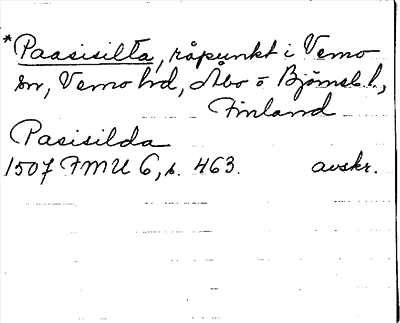 *Paasisilta, råpunkt i Vemo
sn, Vemo hd, Åbo o Björneb. l.,
Finland
Pasisilda
1507 FMU 6, s. 463. avskr.